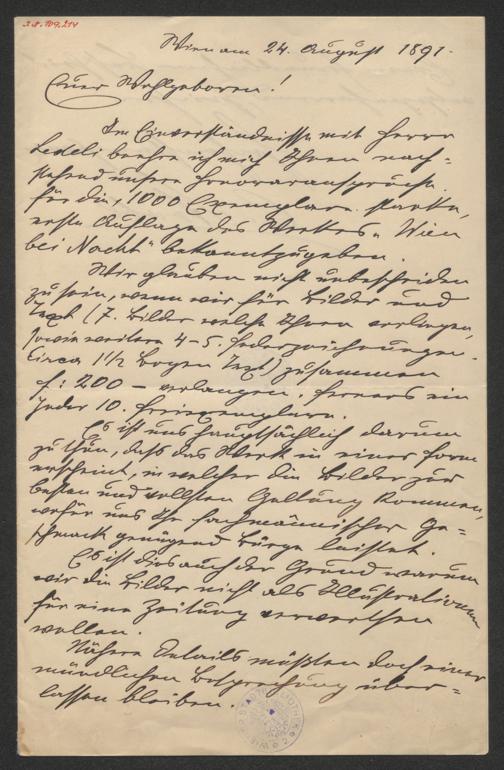 Wien am 24. August 1891.
Euer Wohlgeboren!
Im Einverständnisse mit Herrn
Ledeli beehre ich mich Ihnen nach=
stehend unsere Honoraransprüche
für die, 1000 Exemplare starke,
erste Auflage des Werkes "Wien
bei Nacht" bekanntzugeben.
Wir glauben nicht unbescheiden
zu sein, wenn wir für Bilder und
Text (7. Bilder welche Ihnen vorliegen,
sowie weitere 4-5 Federzeichnungen.
Circa 1 1/2 Bogen Text) zusammen
f: 200 — verlangen, ferners ein
Jeder 10. Freiexemplare.
Es ist uns hauptsächlich darum
zu thun, dass das Werk in einer Form
erscheint, in welcher die Bilder zur
besten und vollsten Geltung kommen,
wofür uns Ihr fachmännischer Ge=
schmack genügend Bürge leistet.
Es ist dies auch der Grund warum
wir die Bilder nicht als Illustrationen
für eine Zeitung verwerthen
wollen.
Nähere Details müssten doch einer
mündlichen Besprechung über=
lassen bleiben.